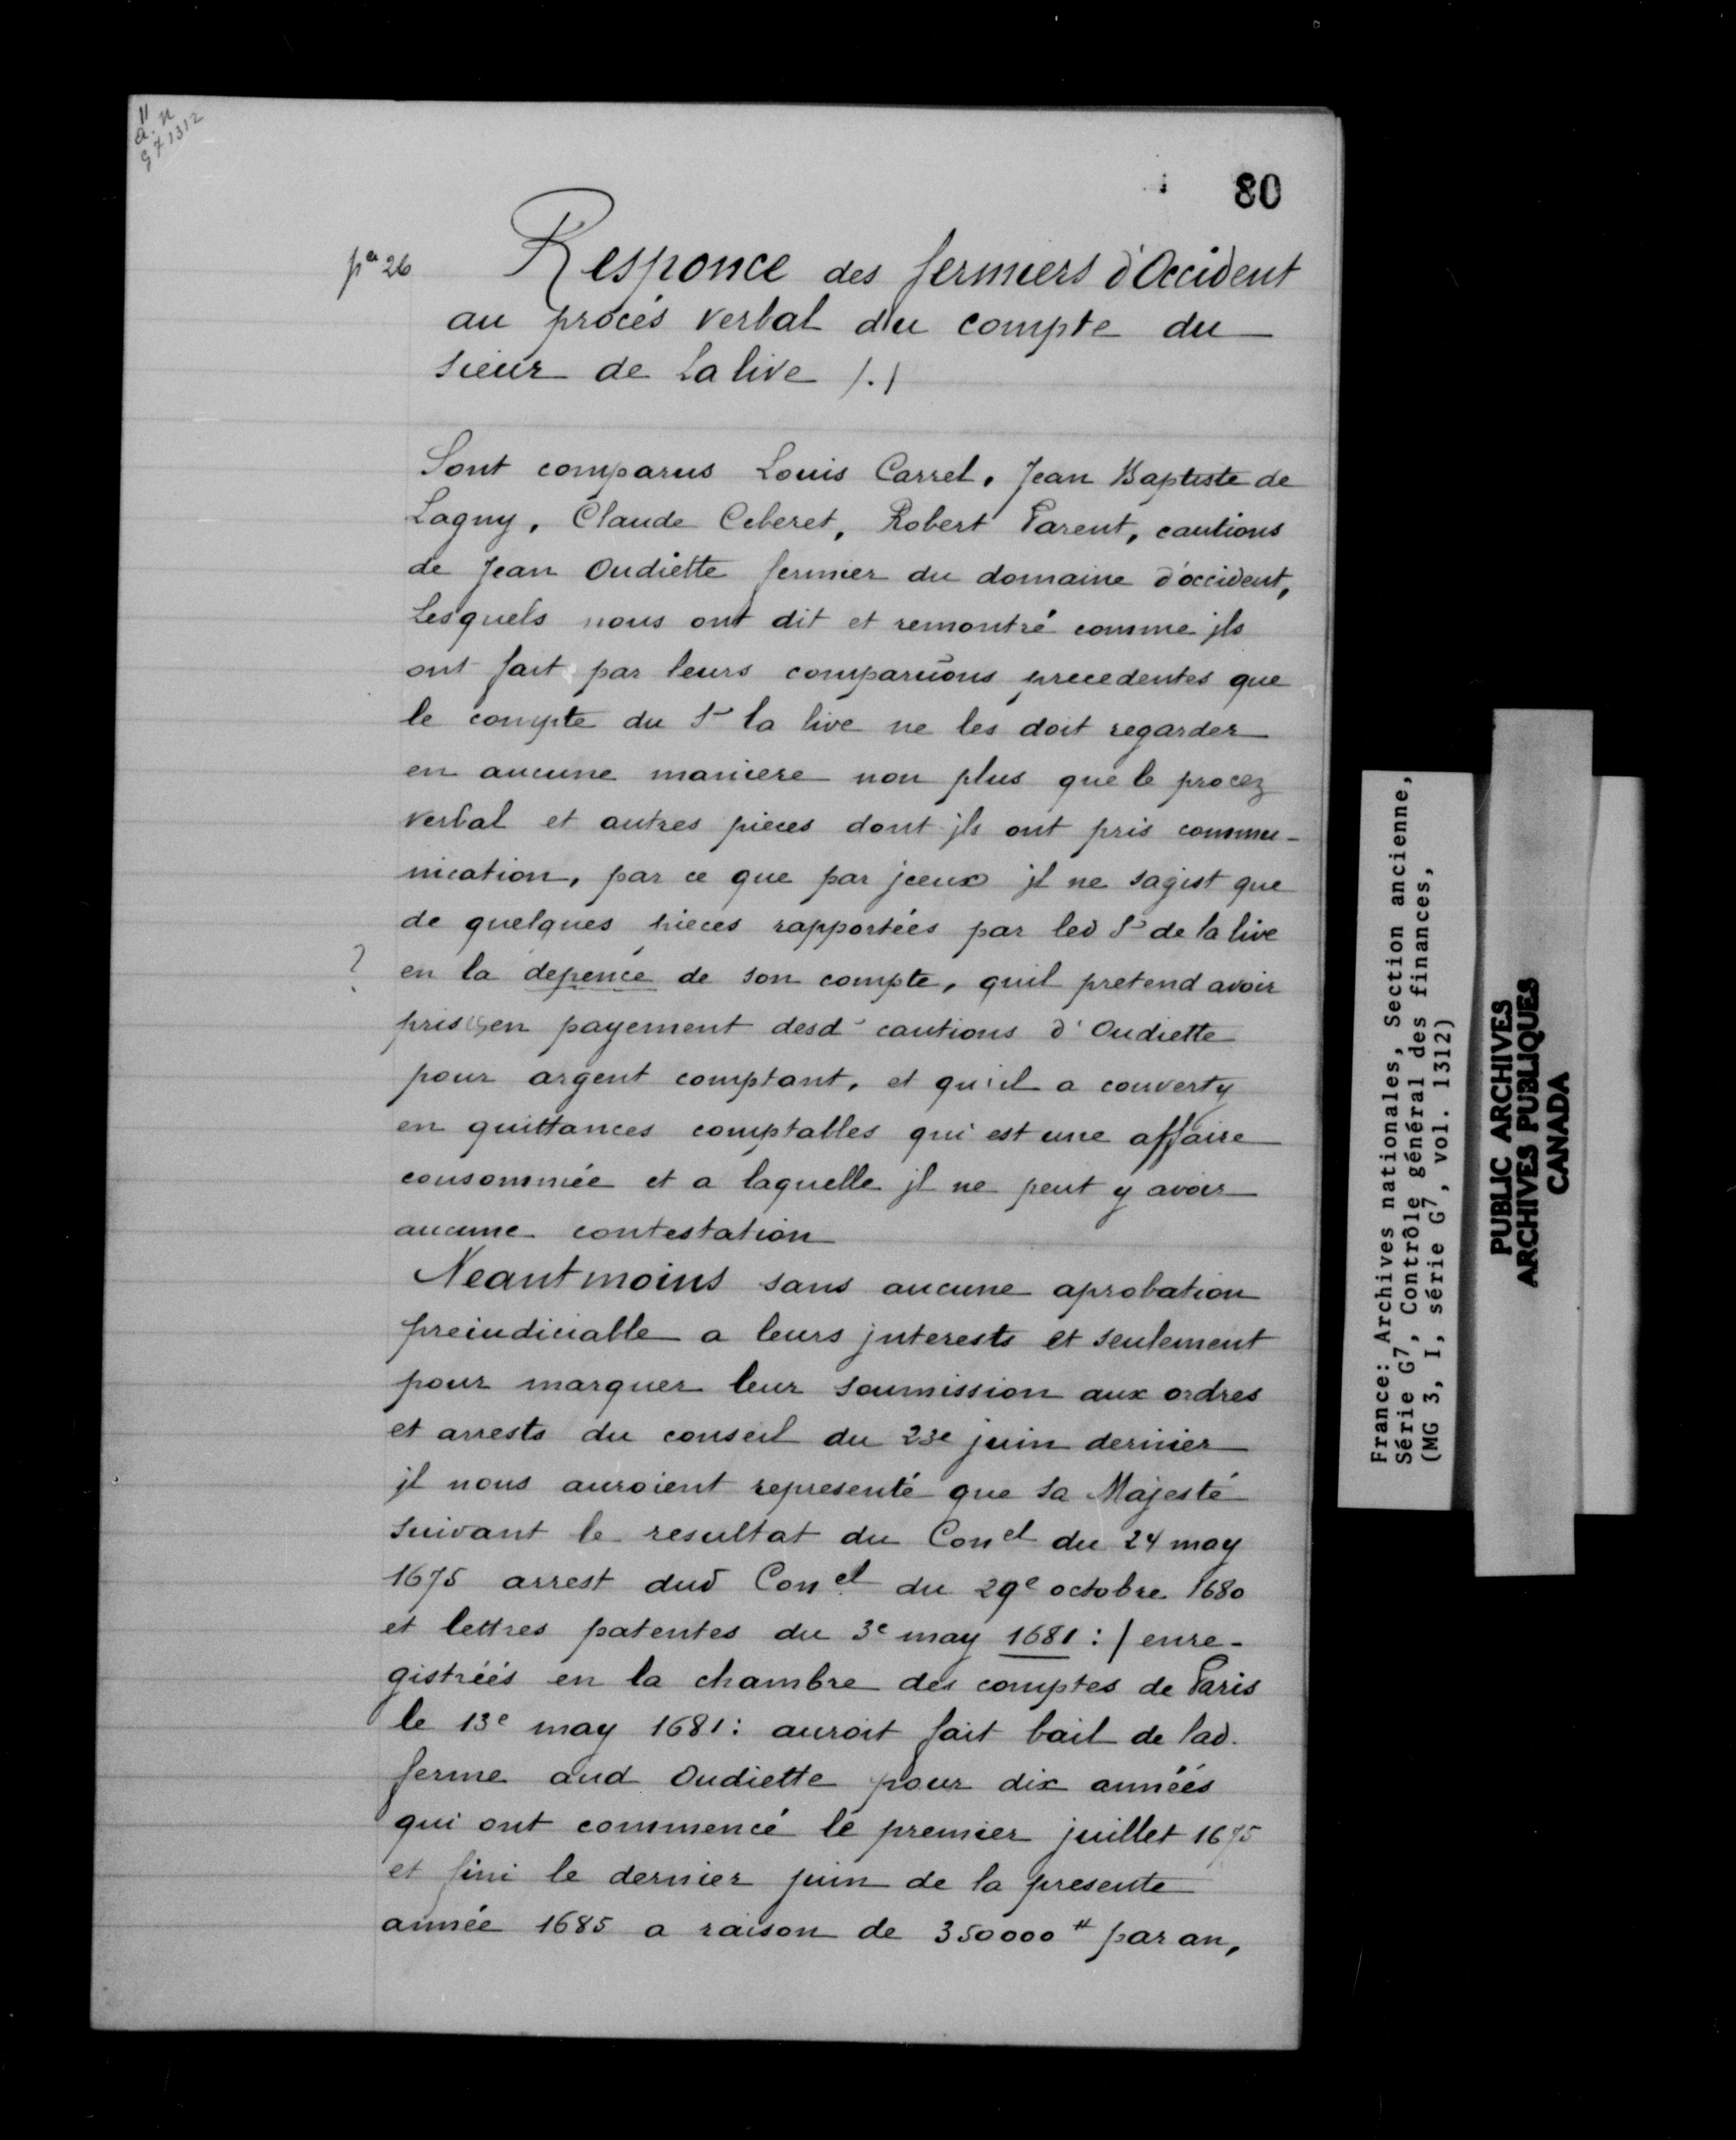 11
a. n
G7 1312
80
pce 26
Responce des fermiers d'Occident
au procés verbal du compte du
sieur de Lalive /./
Sont comparus Louis Carrel, Jean Baptiste de
Lagny, Claude Ceberet, Robert Parent, cautions
de Jean Oudiette fermier du domaine d'occident,
Lesquels nous ont dit et remontré comme jls
ont fait par leurs comparuōns precedentes que
le compte du Sr la live ne les doit regarder
en aucune maniere non plus que le procez
verbal et autres pieces dont jls ont pris commu-
nication, par ce que par jceux jl ne sagist que
de quelques pieces rapportées par led Sr de la live
? en la depence de son compte, quil pretend avoir
pris en payement desd cautions d'Oudiette
pour argent comptant, et qu'il a converty
en quittances comptables qui est une affaire
consommée et a laquelle jl ne peut y avoir
aucune contestation
Neantmoins sans aucune aprobation
preiudiciable a leurs jnterests et seulement
pour marquer leur soumission aux ordres
et arrests du conseil du 23e juin dernier
jl nous auroient representé que sa Majesté
suivant le resultat du Conel du 24 may
1675 arrest dud Conel du 29e octobre 1680
et lettres patentes du 3e may 1681 : / enre-
gistréés en la chambre des comptes de Paris
le 13e may 1681 : auroit fait bail de lad.
ferme aud Oudiette pour dix annéés
qui ont commencé le premier juillet 1675
et fini le dernier juin de la presente
année 1685 a raison de 350000 ₶ par an,
France: Archives nationales, Section ancienne,
Série G7, Contrôle général des finances,
(MG 3, I, série G7, vol. 1312)
PUBLIC ARCHIVES
ARCHIVES PUBLIQUES
CANADA